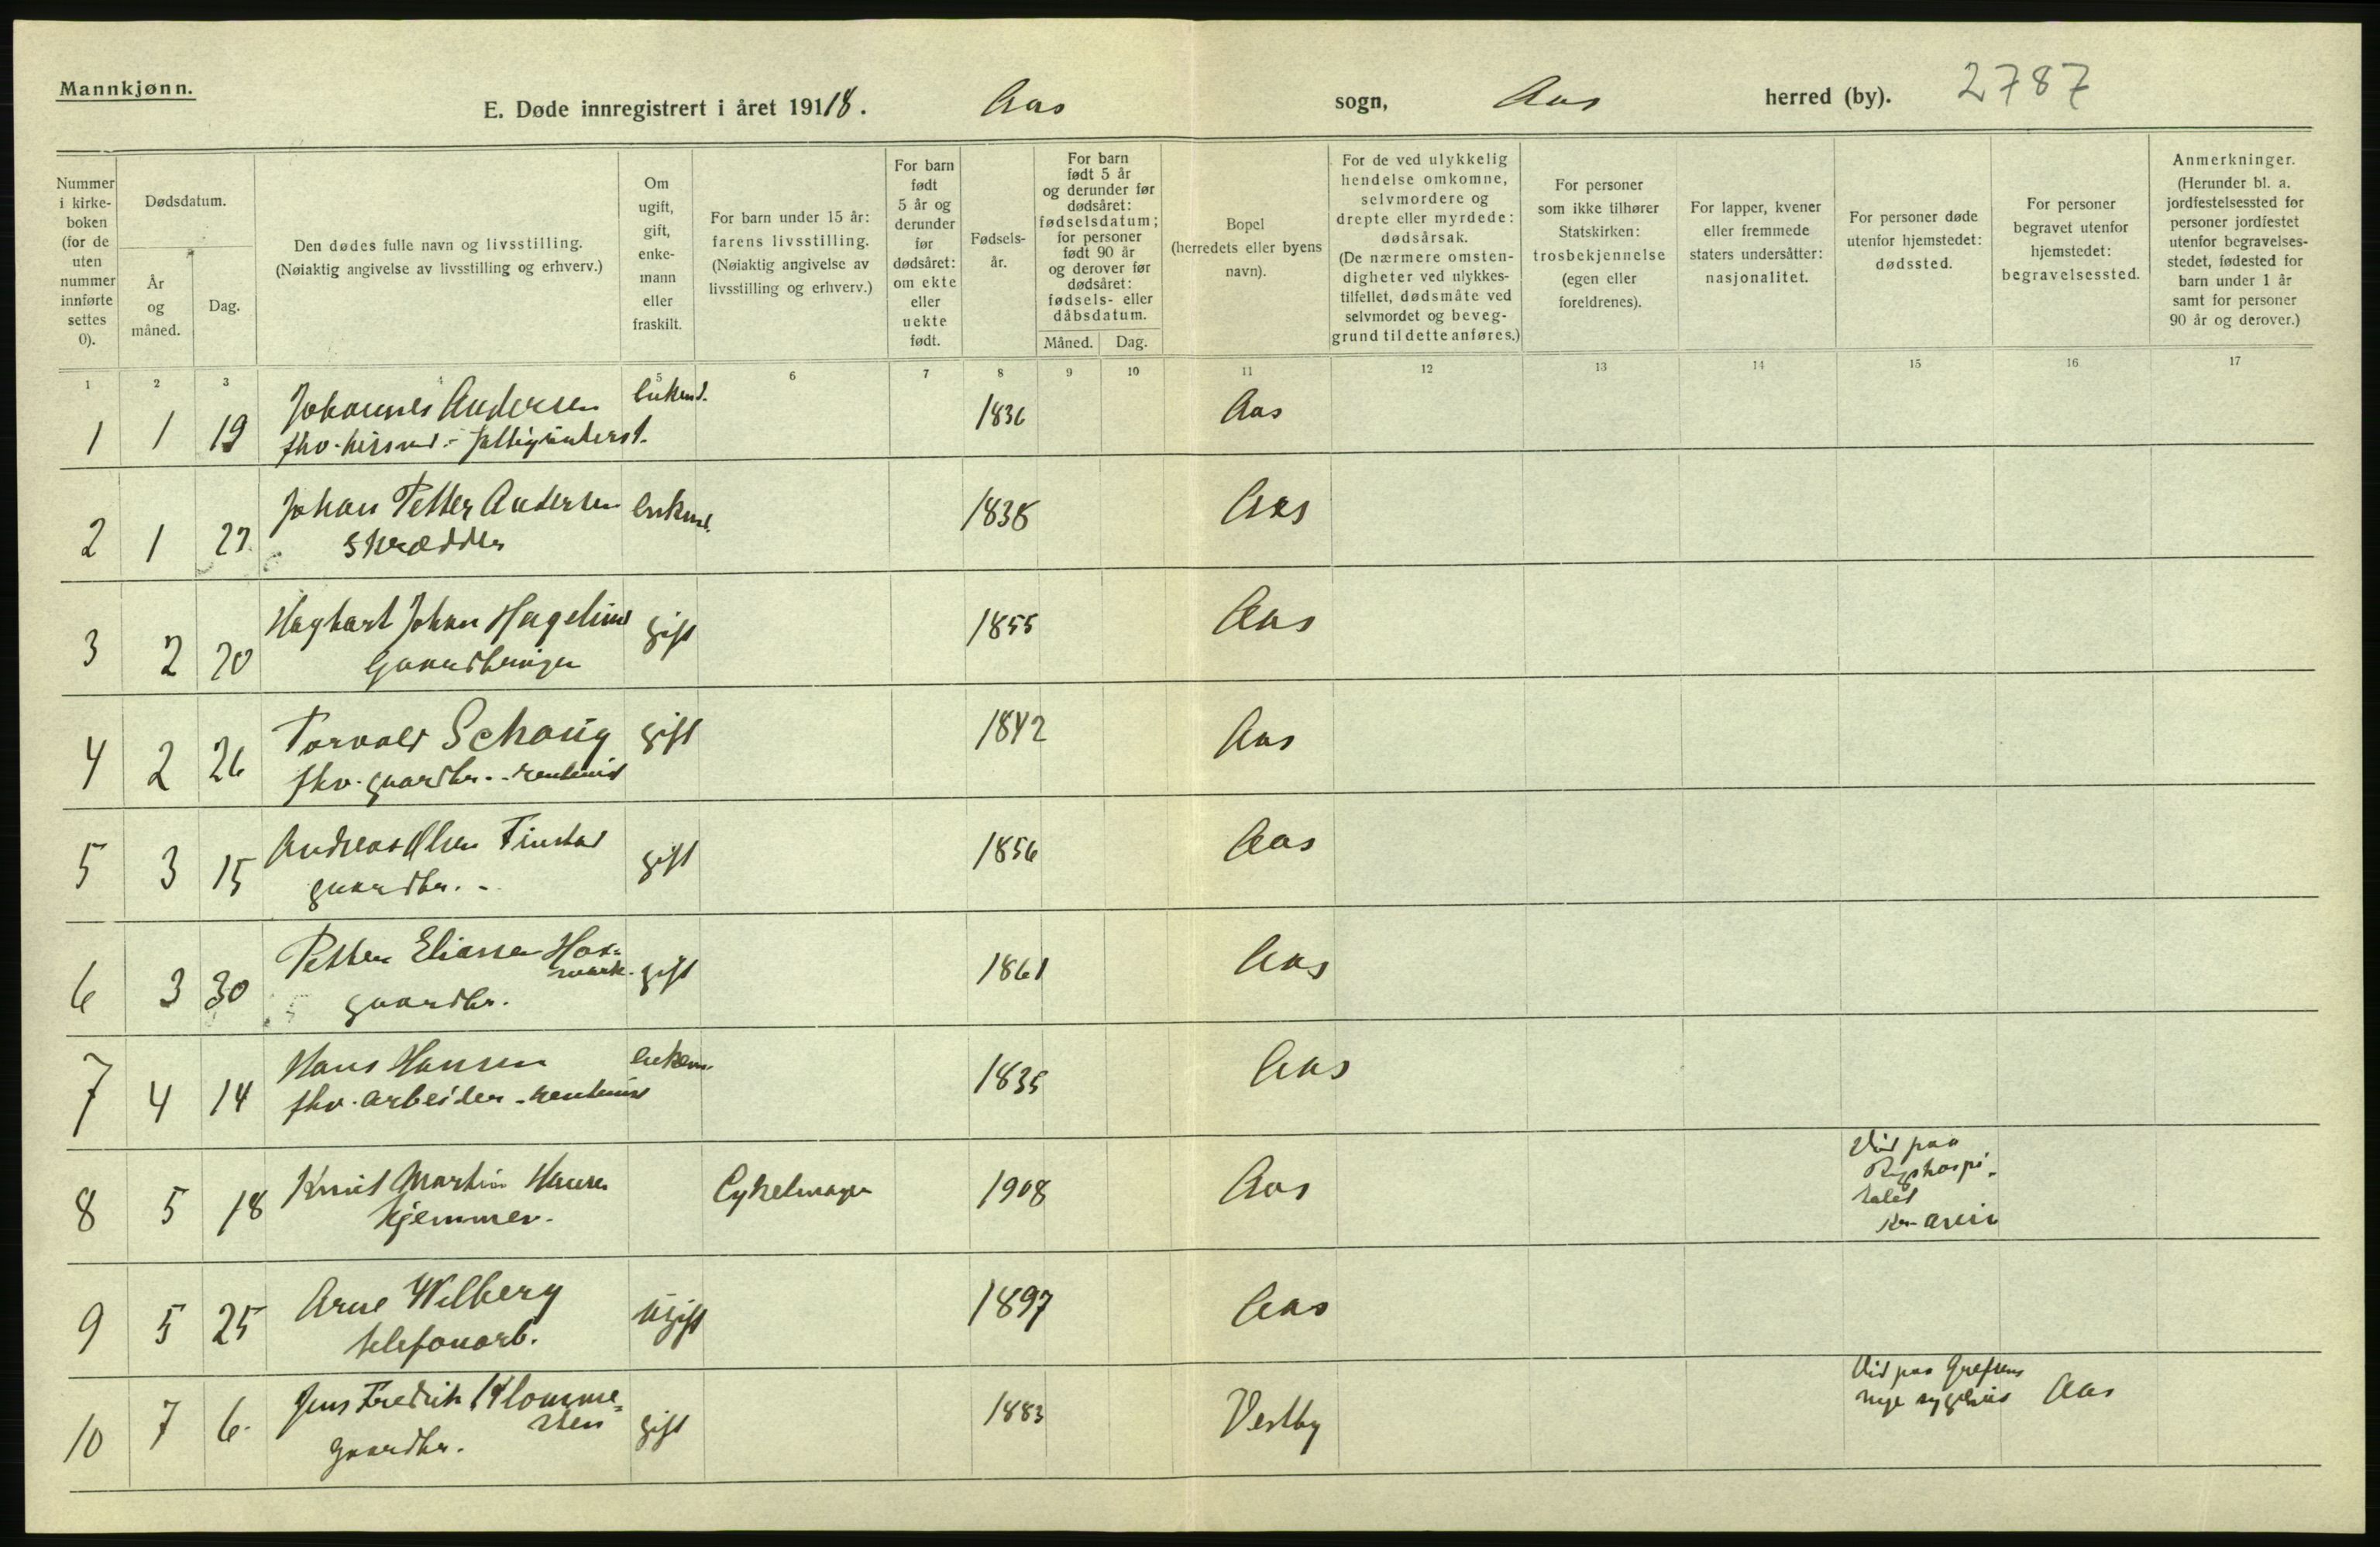 Mannkjønn.
E. Døde innregistrert i året 19118. Aas sogn, Aas herred (by). 2787
Nummer i kirke-boken (for de uten nummer innførte settes 0).
Dødsdatum.
År og måned.
Dag.
Den dødes fulle navn og livsstilling.
(Nøiaktig angivelse av livsstilling og erhverv.)
Om ugift, gift, enke-mann eller fraskilt.
For barn under 15 år: farens livsstilling.
(Nøiaktig angivelse av livsstilling og erhverv.)
For barn født 5 år og derunder før dødsåret: om ekte eller uekte født.
Fødsels-år.
For barn født 5 år og derunder før dødsåret: fødselsdatum; for personer født 90 år og derover før dødsåret: fødsels- eller dåbsdatum.
Måned. Dag.
Bopel (herredets eller byens navn).
For de ved ulykkelig hendelse omkomne, selvmordere og drepte eller myrdede: dødsårsak.
(De nærmere omsten-digheter ved ulykkes-tilfellet, dødsmåte ved selvmordet og beveg-grund til dette anføres.)
For personer som ikke tilhører Statskirken: trosbekjennelse (egen eller foreldrenes).
For lapper, kvener eller fremmede staters undersåtter: nasjonalitet.
For personer døde utenfor hjemstedet: dødssted.
For personer begravet utenfor hjemstedet: begravelsessted.
Anmerkninger.
(Herunder bl. a. jordfestelsessted for personer jordfestet utenfor begravelses-stedet, fødested for barn under 1 år samt for personer 90 år og derover.)
1 2 3 4 5 6 7 8 9 10 11 12 13 14 15 16 17
1 1 19 Johannes Andersen enkem. 1836 Aas
fhv.
2 1 27 Johan Petter Andersen enkem. 1838 Aas
Skrædder
3 2 20 Haghart Johan Hagelund gift 1855 Aas
Gaardbruger
4 2 26 Torvald Schoug gift 1842 Aas
fhv. gaardbr. - rentenist
5 3 15 Andreas Olsen Finstad gift 1856 Aas
gaardbr. -
6 3 30 Petter Eliassen gift 1861 Aas
gaardbr.
7 4 14 Hans Hansen enkem. 1835 Aas
fhv. arbeider - rentenist
8 5 18 Knut Martin Hansen Cykelmager 1908 Aas Død paa
Rigshospi-
talet
Kr.ania
hjemmev.
9 5 25 Arne Wilberg ugift 1897 Aas
telefonarb.
10 7 6. Jens Fredrik Klomme=
sten gift 1883 Vestby Død paa Grefsens
nye sygehus Aas
gaardbr.